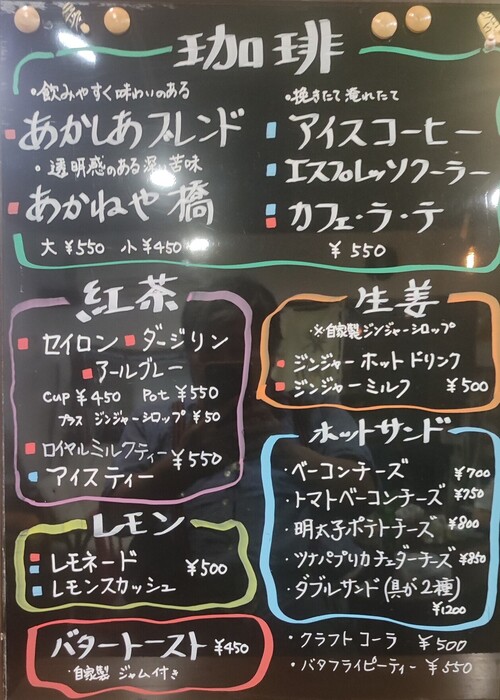 珈琲
・飲みやすく味わいのある
あかしあブレンド
・透明感のある深い苦味
あかねや橋
大 ¥550 小 ¥450
・挽きたて淹れたて
アイスコーヒー
エスプレッソクーラー
カフェ・ラ・テ
¥550
紅茶
セイロン ダージリン
アールグレー
cup ¥450 Pot ¥550
プラス ジンジャーシロップ ¥50
ロイヤルミルクティー
アイスティー
¥550
生姜
※自家製ジンジャーシロップ
ジンジャーホットドリンク
ジンジャーミルク ¥500
ホットサンド
・ベーコンチーズ ¥700
・トマトベーコンチーズ ¥750
・明太子ポテトチーズ ¥800
・ツナパプリカチェダーチーズ ¥850
・ダブルサンド(具が2種)
¥1200
レモン
レモネード
レモンスカッシュ
¥500
バタートースト ¥450
・自家製 ジャム付き
・クラフトコーラ ¥500
・バタフライピーティー ¥550